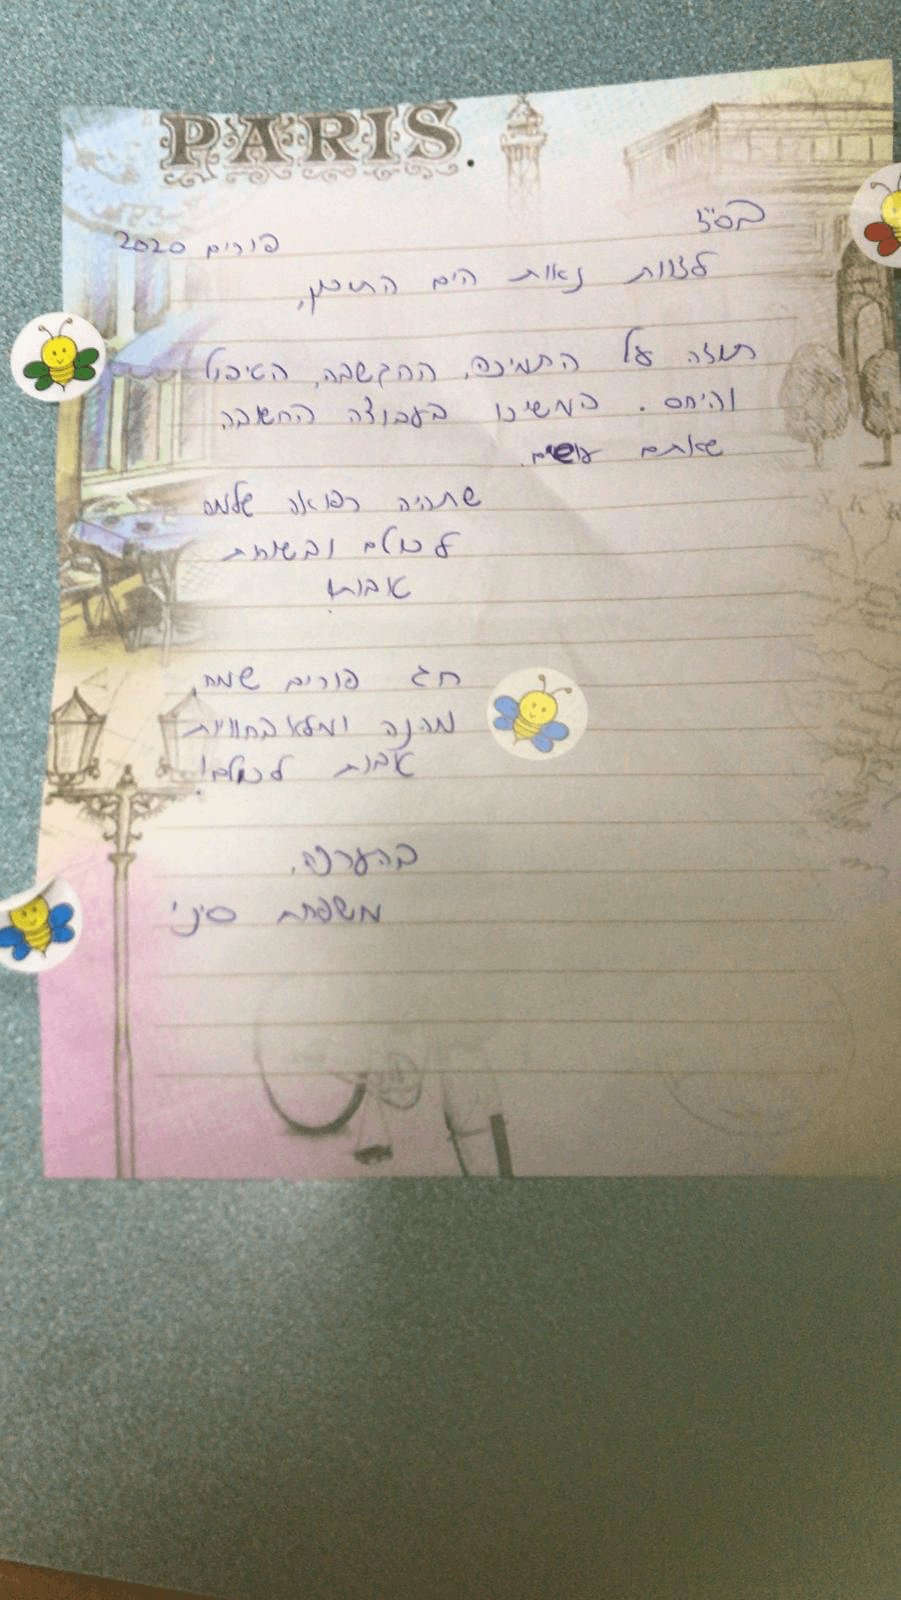 PARIS.
בס"ד
פורים 2020
לצוות נאות הים התיכון,
תודה על התמיכה, ההקשבה, הטיפול
והיחס. המשיכו בעבודה החשובה
שאתם עושים.
שתהיה רפואה שלמה
לכולם ובשורות
טובות!
חג פורים שמח,
מהנה ומלא בחוויות
טובות לכולם!
בהערכה,
משפחת סיני